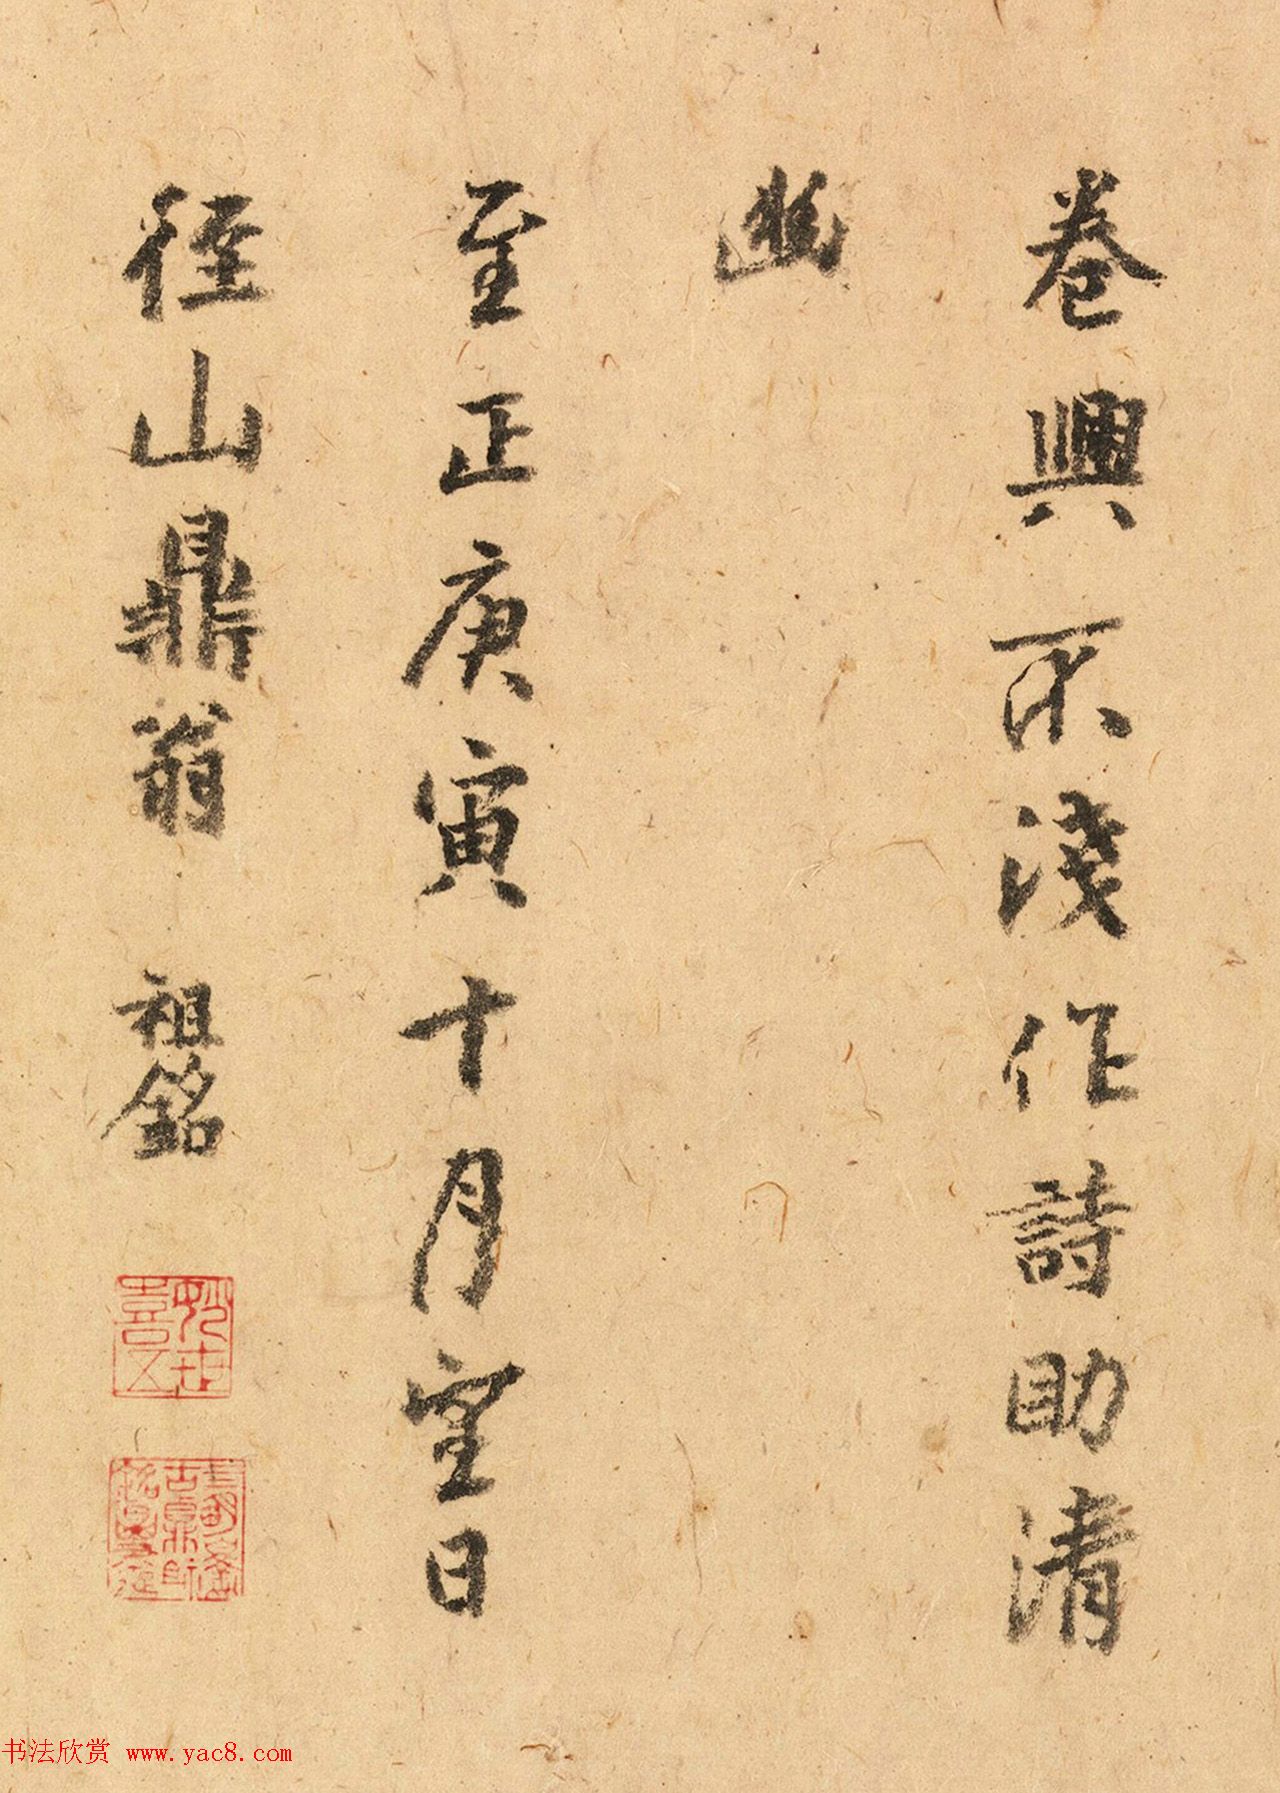 卷興不淺作詩助清
幽
至正庚寅十月望日
徑山鼎翁 祖銘
妙喜五世
书法欣赏 www.yac8.com